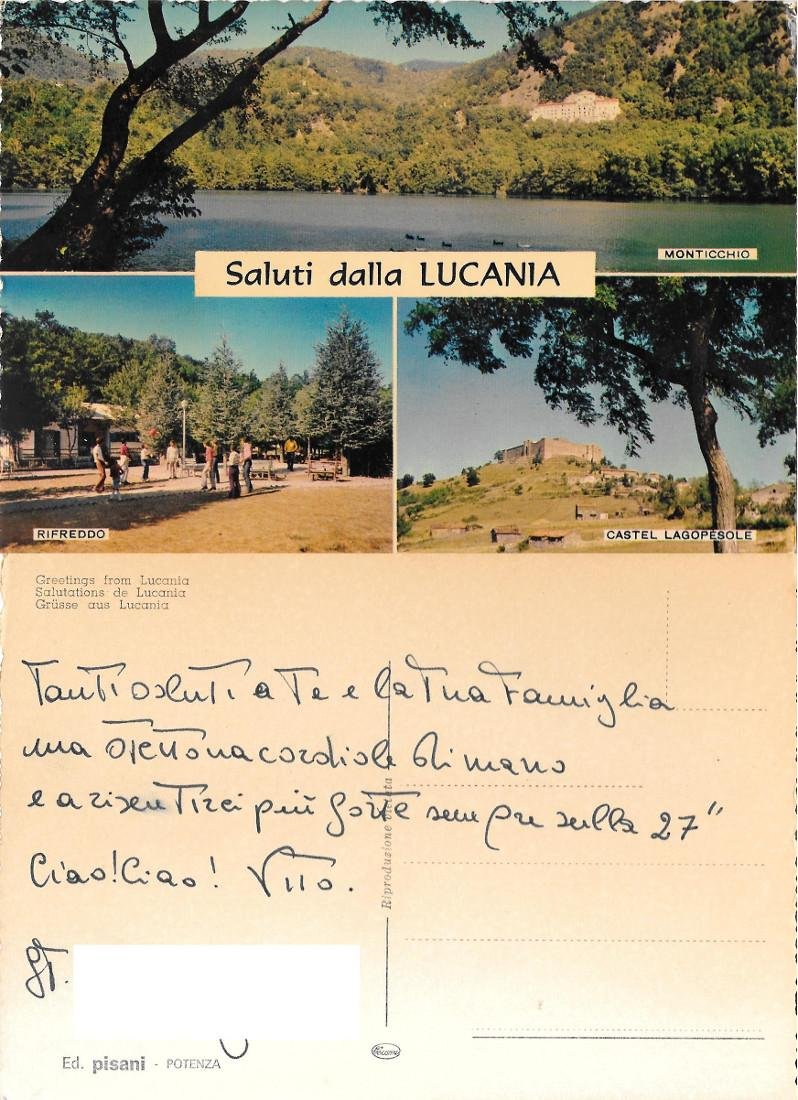 MONTICCHIO
Saluti dalla LUCANIA
RIFREDDO
CASTEL LAGOPESOLE
Greetings from Lucania
Salutations de Lucania
Grüsse aus Lucania
Tanti saluti a Te e la Tua Famiglia
una strettona cordiale di mano
e a risentirci più forte sempre sulla 27"
Ciao! Ciao! Vito.
Riproduzione vietata
Ed. pisani - POTENZA